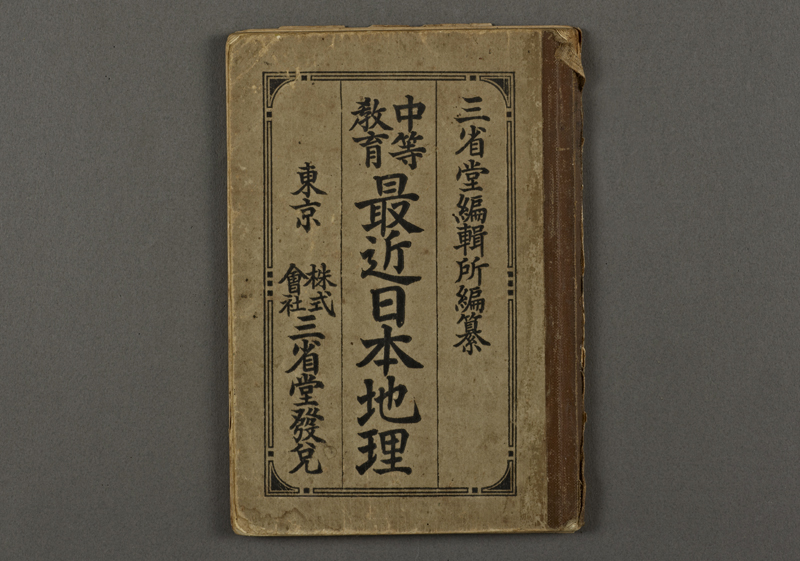 三省堂編輯所編纂
中等
教育
最近日本地理
東京
株式
會社
三省堂發兌